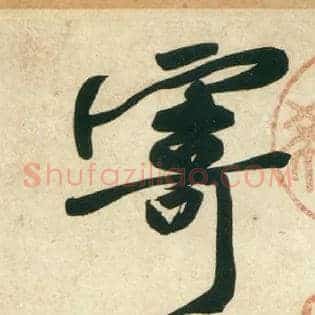 寄
ShufaZiliao.COM